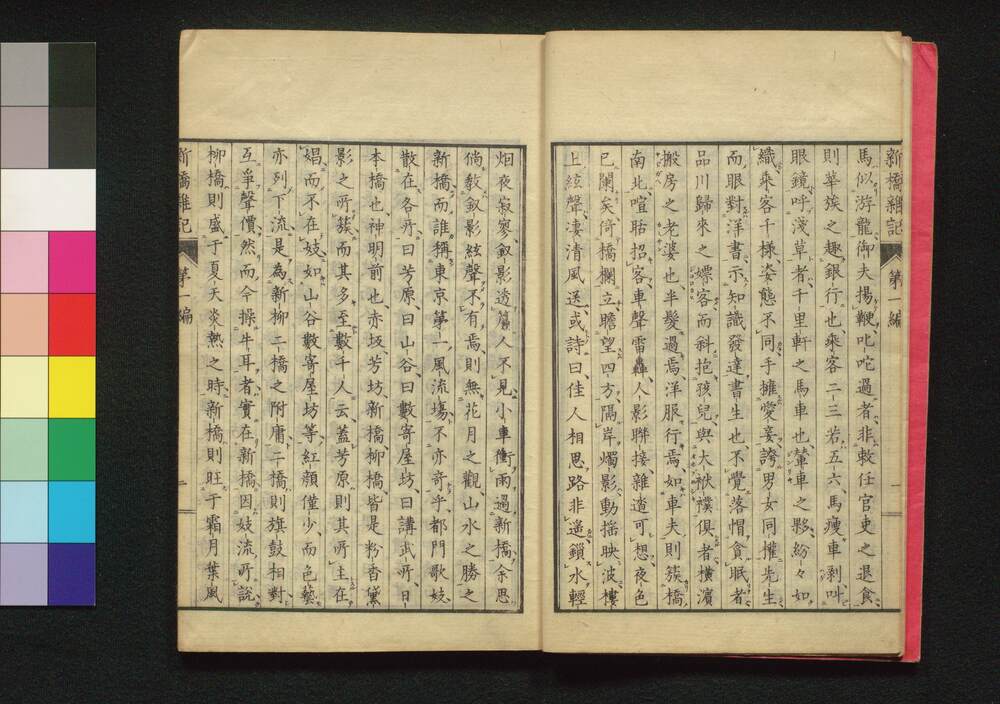 新橋雜記　第一編
馬似游龍御夫揚鞭叱咤過者非敕任官吏之退食
則華族之趣銀行也乘客二三若五六馬瘦車剥叫
眼鏡呼淺草者千里軒之馬車也輦車之夥紛々如
織乘客千様姿態不同手擁愛妾誇男女同權先生
而眼對洋書示知識發達書生也不覺落帽貪眠者
品川歸來之嫖客而斜抱孩兒與大袱襆俱者橫濱
搬房之老婆也半髮過焉洋服行焉如車夫則簇橋
南北喧聒招客車聲雷轟人影聯接雜遝可想夜色
已闌矣倚橋欄立瞻望四方隔岸燭影動搖映波樓
上絃聲凄清風送或詩曰佳人相思路非遥鎖水輕
烟夜寂寥釵影透簾人不見小車衝雨過新橋余思
倘敎釵影絃聲不有焉則無花月之觀山水之勝之
新橋而誰稱東京第一風流塲不亦奇乎都門歌妓
散在各所曰芳原曰山谷曰數寄屋坊曰講武所曰
本橋也神明前也赤坂芳坊新橋柳橋皆是粉香黛
影之所簇而其多至數千人云蓋芳原則其所主在
娼而不在妓如山谷數寄屋坊等紅顏僅少而色藝
亦列下流是為新柳二橋之附庸二橋則旗鼓相對
互爭聲價然而今操牛耳者實在新橋因妓流所説
柳橋則盛于夏天炎熱之時新橋則旺于霜月葉風
新橋雜記　第一編　二